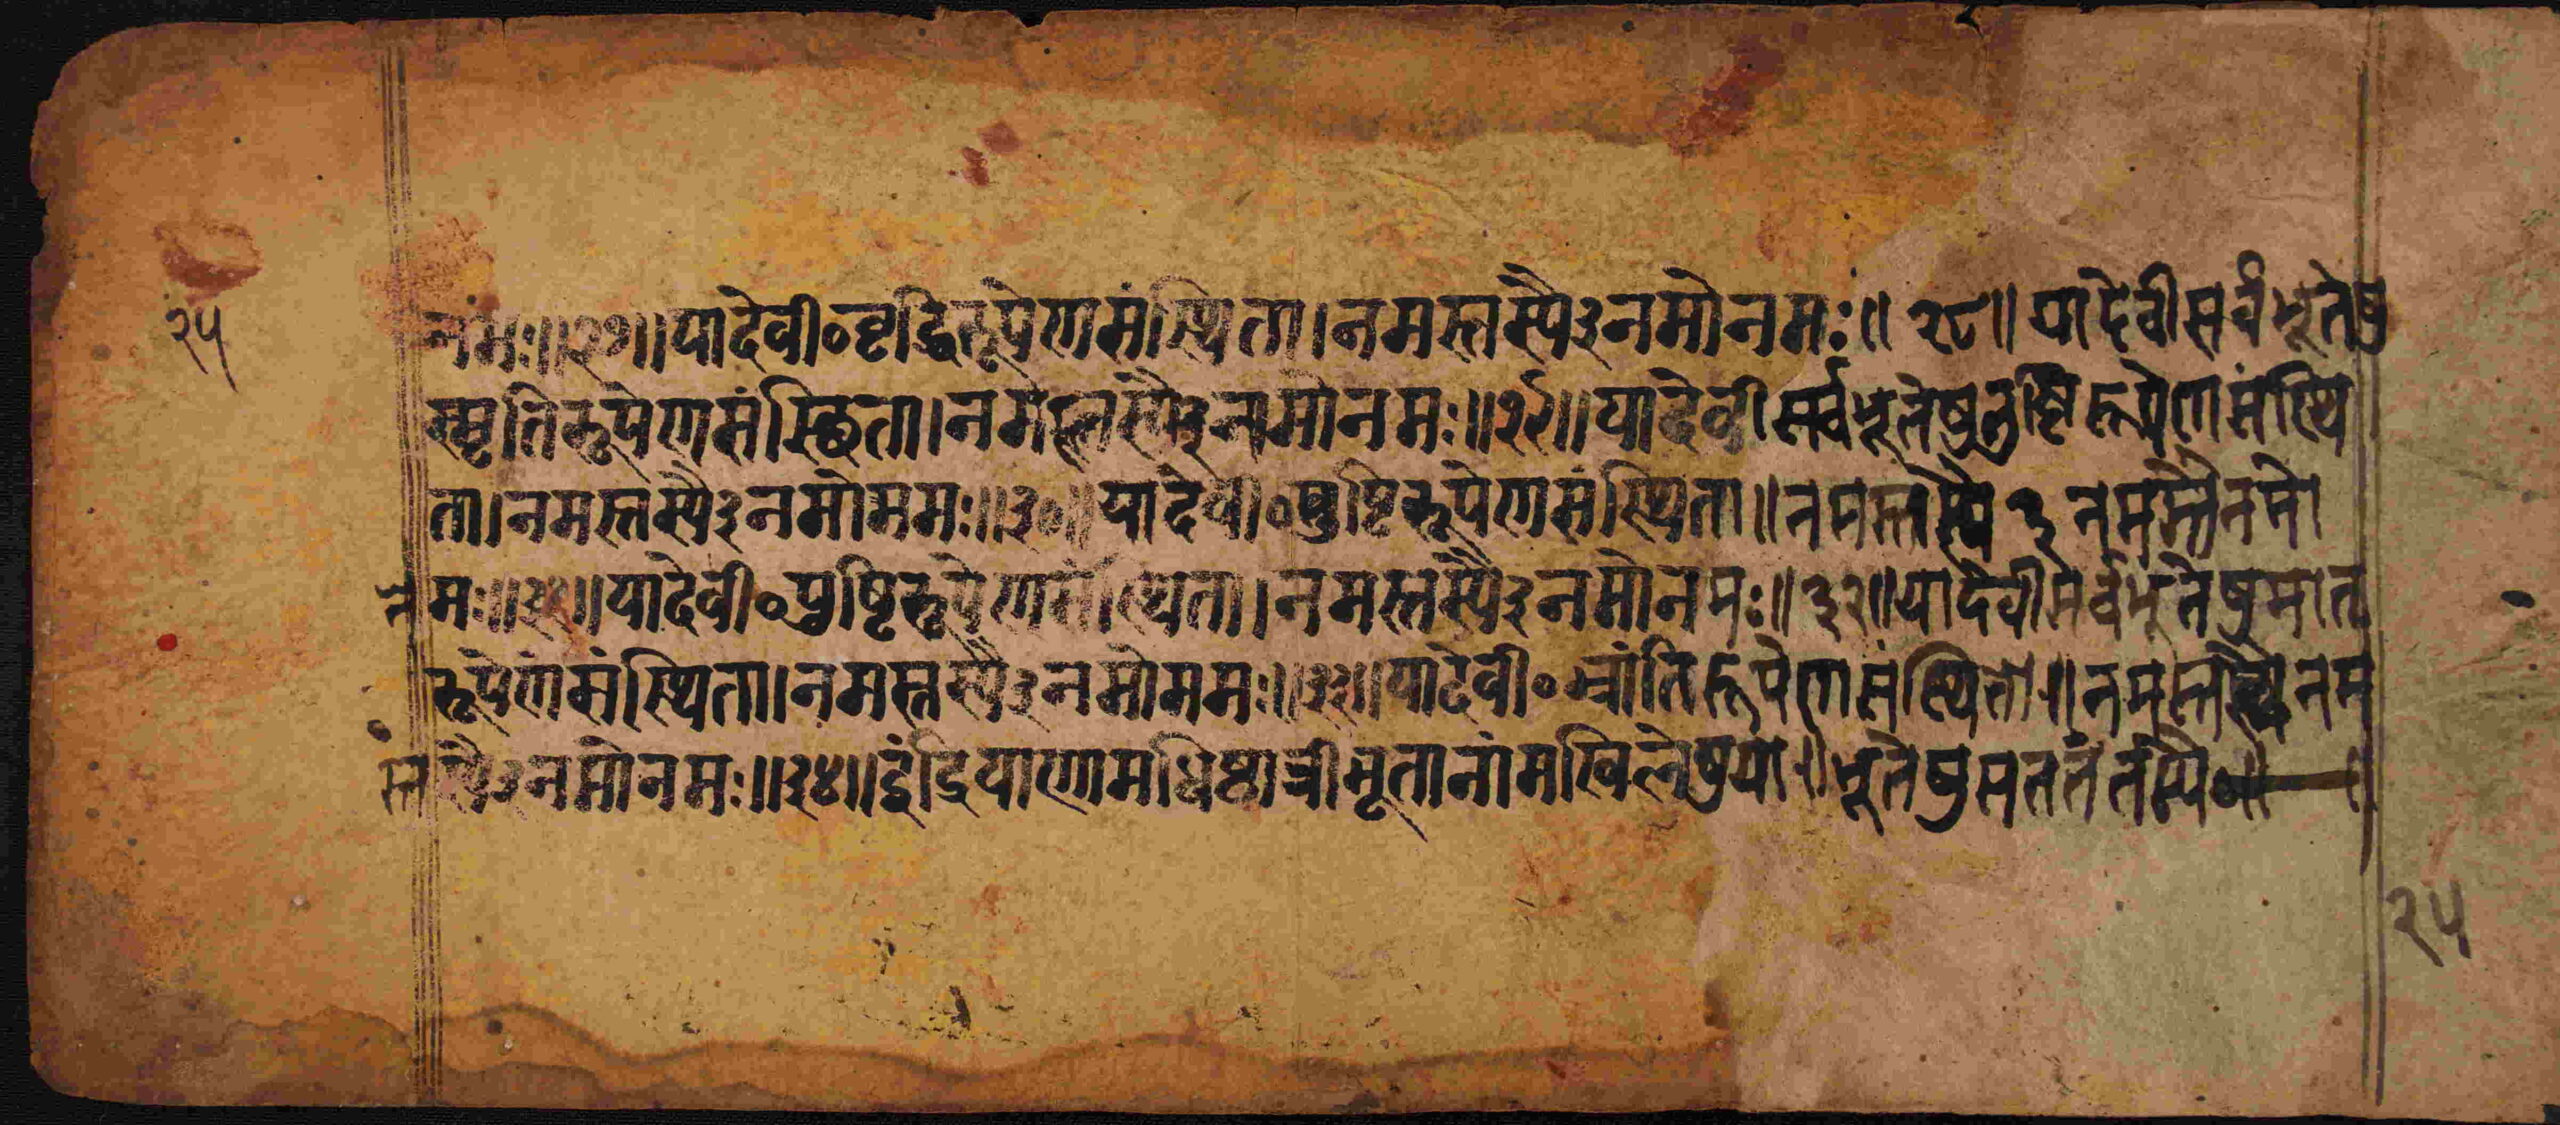 २५
नमः॥२७॥यादेवी०वृद्धिरूपेणसंस्थिता।नमस्तस्यै३नमोनमः॥२८॥यादेवीसर्वभूतेषु
स्मृतिरूपेणसंस्थिता।नमस्तस्यै३नमोनमः॥२९॥यादेवीसर्वभूतेषुतुष्टिरूपेणसंस्थि
ता।नमस्तस्यै३नमोममः॥३०॥यादेवी०पुष्टिरूपेणसंस्थिता॥नमस्तस्यै३नमस्तनमो
नमः॥३१॥यादेवी०पुष्टिरूपेणसंस्थिता।नमस्तस्यै३नमोनमः॥३२॥यादेवीसर्वभूतेषुमातृ
रूपेणसंस्थिता।नमस्तस्यै३नमोममः॥३३॥यादेवी०भ्रांतिरूपेणसंस्थिता॥नमस्तस्यैनम
स्तस्यै३नमोनमः॥३४॥इंद्रियाणामधिष्ठात्रीभूतानांमखिलेषुया॥भूतेषुसततंतस्यै०॥
२५